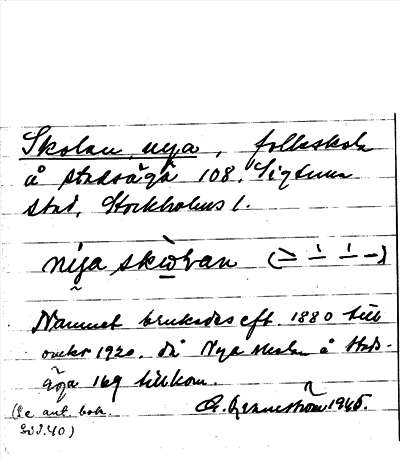 Skolan, nya, folkskola
å stadsäga 108, Sigtuna
stad, Stockholms l.
nya skolan
Namnet brukades eft. 1880 till
omkr 1920, då Nya skolan å Stads-
äga 169 tillkom.
(Se ant. bok.
sid. 40) 1945.